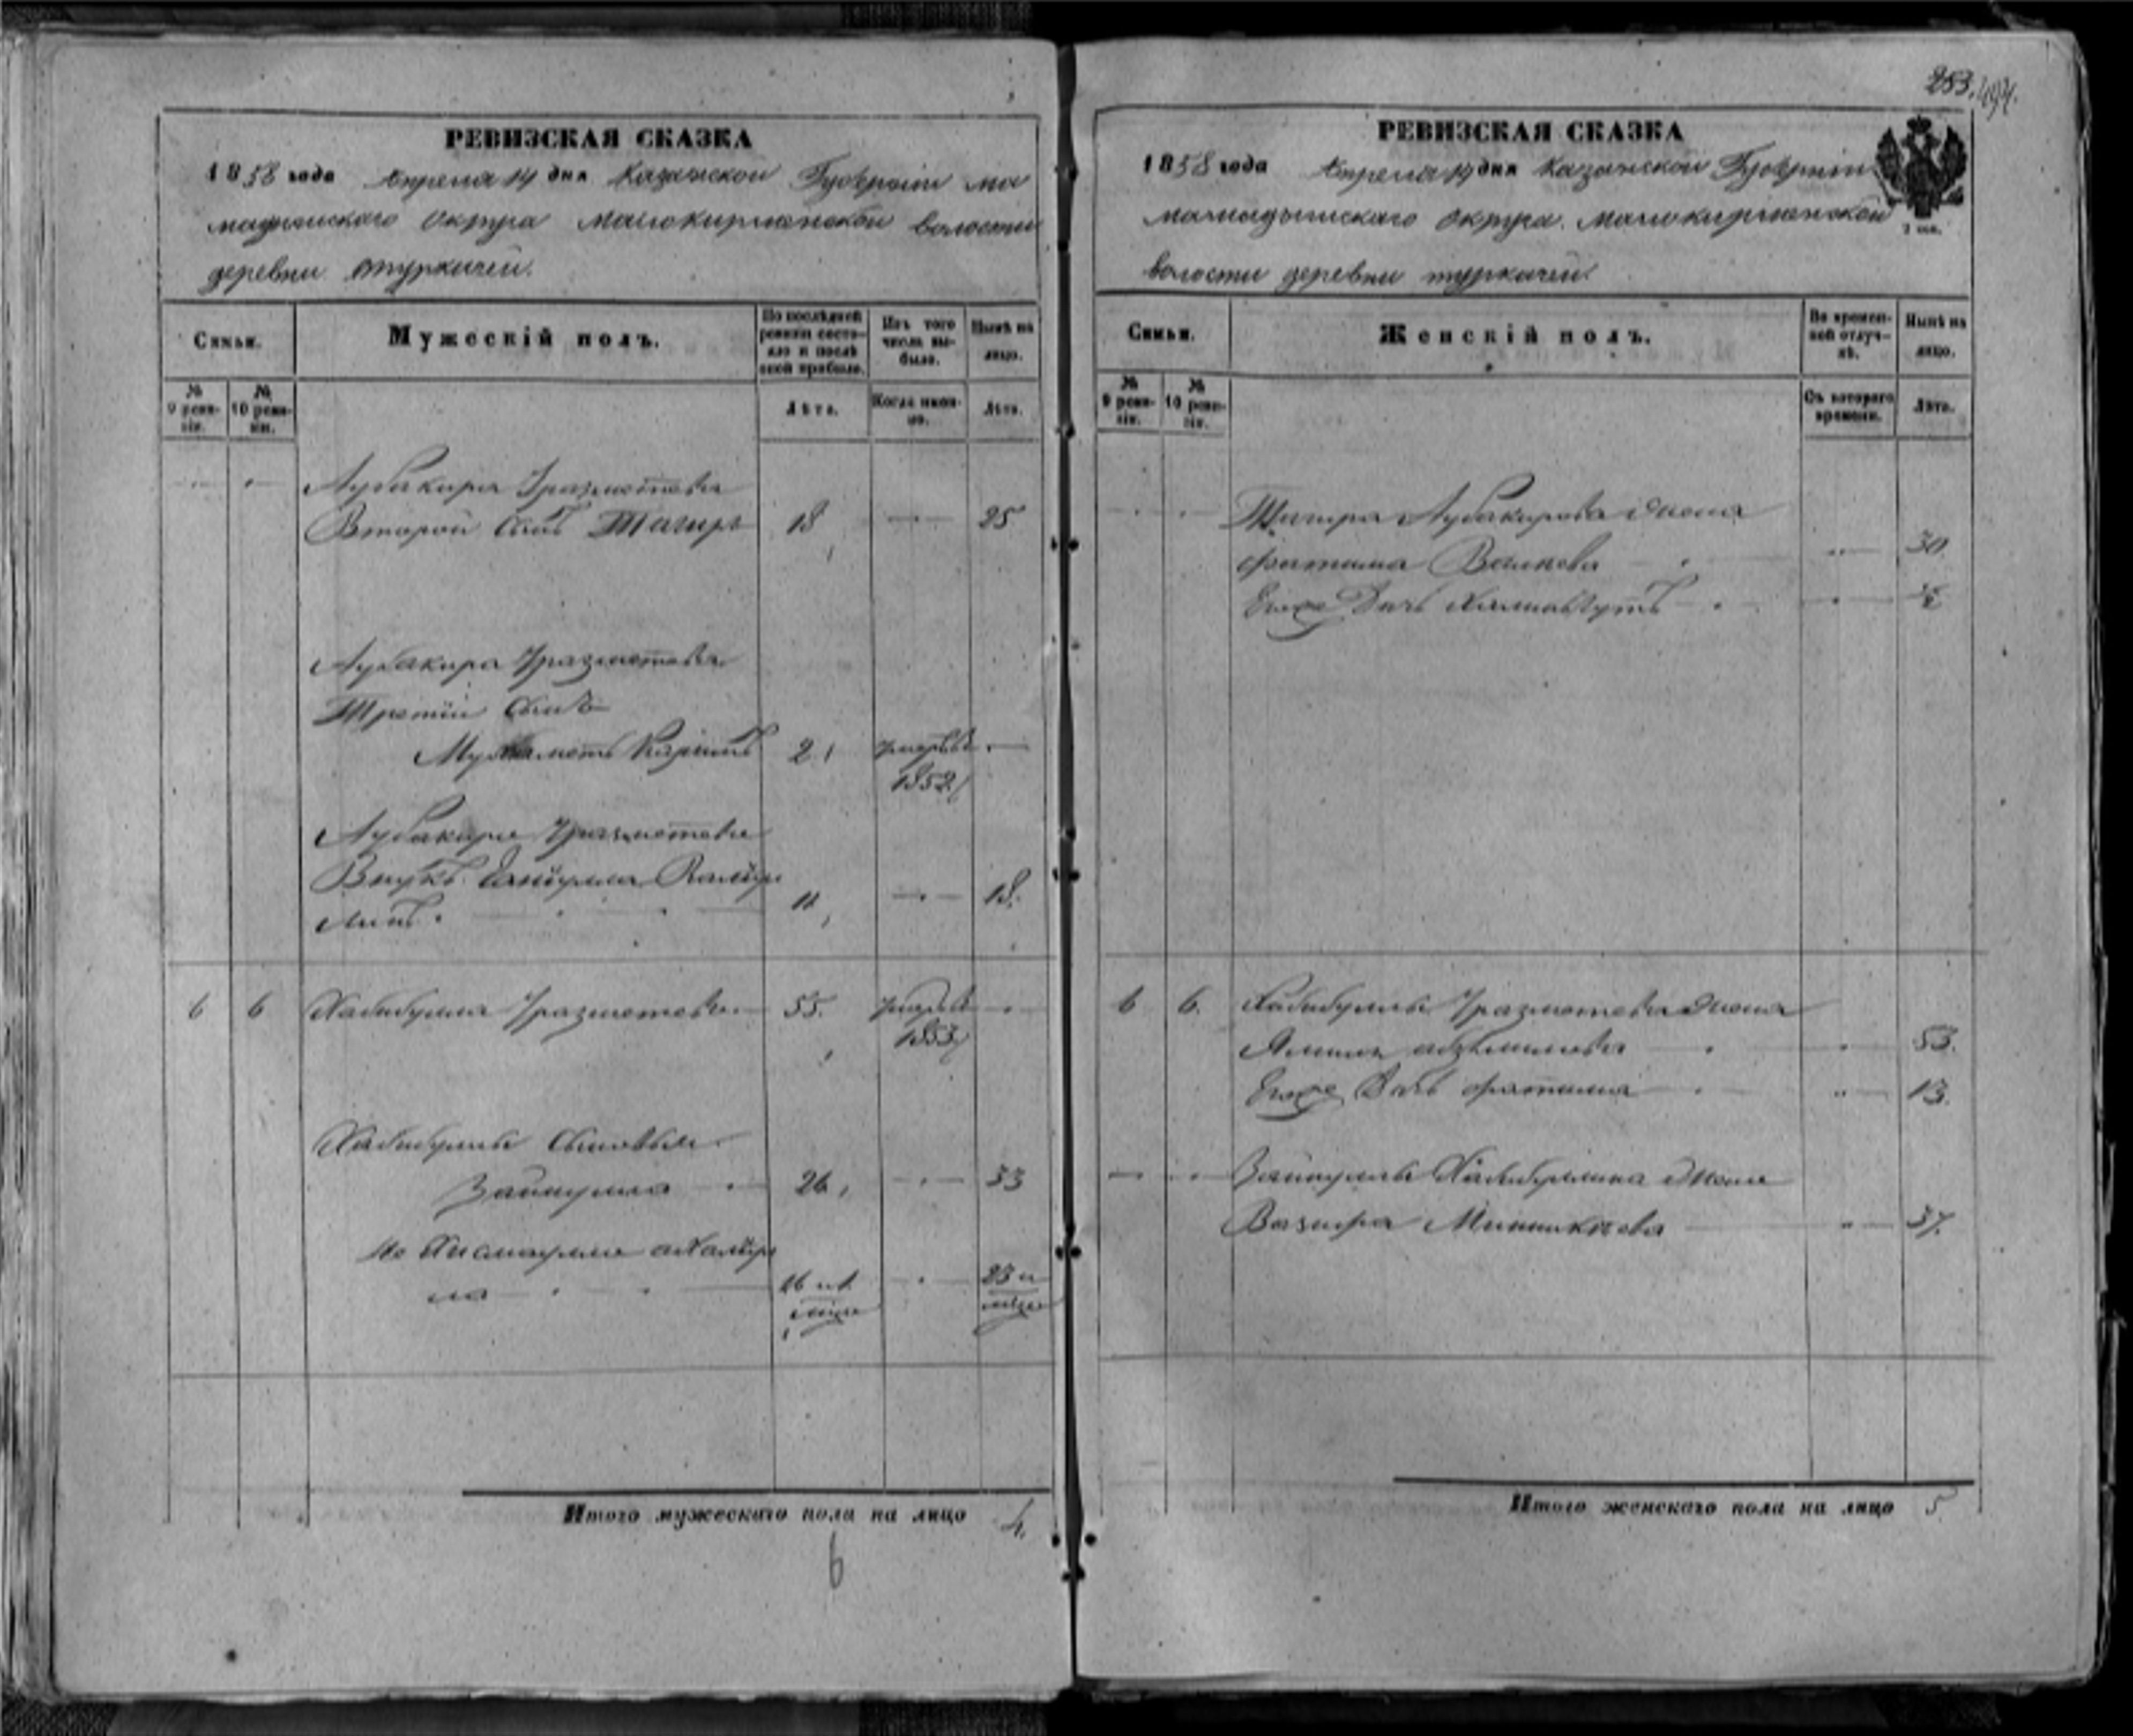 РЕВИЗСКАЯ СКАЗКА
1858 года Апреля 14 дня Казанской Губернии Ма
мадышского Округа Малокирменской волости
деревни Туркичей.
Семьи.
Мужескій полъ.
По послѣдней ревизіи состояло и послѣ оной прибыло.
Изъ того числа выбыло.
Нынѣ на лицо.
№ 9 ревизіи.
№ 10 ревизіи.
Лѣта.
Когда именно.
Лѣта.
Аубакира Уразметева
Второй сынъ Тагиръ 18 25
Аубакира Уразметева
Третій сынъ
Мухаметь Каримъ 2 умеръ въ
1852
Аубакира Уразметева
Внукъ 11 18.
6 6 Хабибулла Уразметевъ 55. умеръ в
1853
Хабибуллы сыновья
Зайнулла 26 33
16 и 1 23 и
Итого мужескаго пола на лицо 4.
6
253. 494.
РЕВИЗСКАЯ СКАЗКА
1858 года Апреля 14 дня Казанской Губерніи
мамадышскаго Округа Малокирменской
2 сер.
волости деревни туркичей
Семьи.
Женскій полъ.
Во временной отлучкѣ.
Нынѣ на лицо.
№ 9 ревизіи.
№ 10 ревизіи.
Съ котораго времени.
Лѣта.
Тагира Аубакирова жена
Фатима Валиева 30
Его же дочь
6 6. Хабибуллы Уразметева жена
53.
Его же дочь Фатима 13.
Зайнуллы Хабибуллина жена
Вазира 37.
Итого женскаго пола на лицо 5